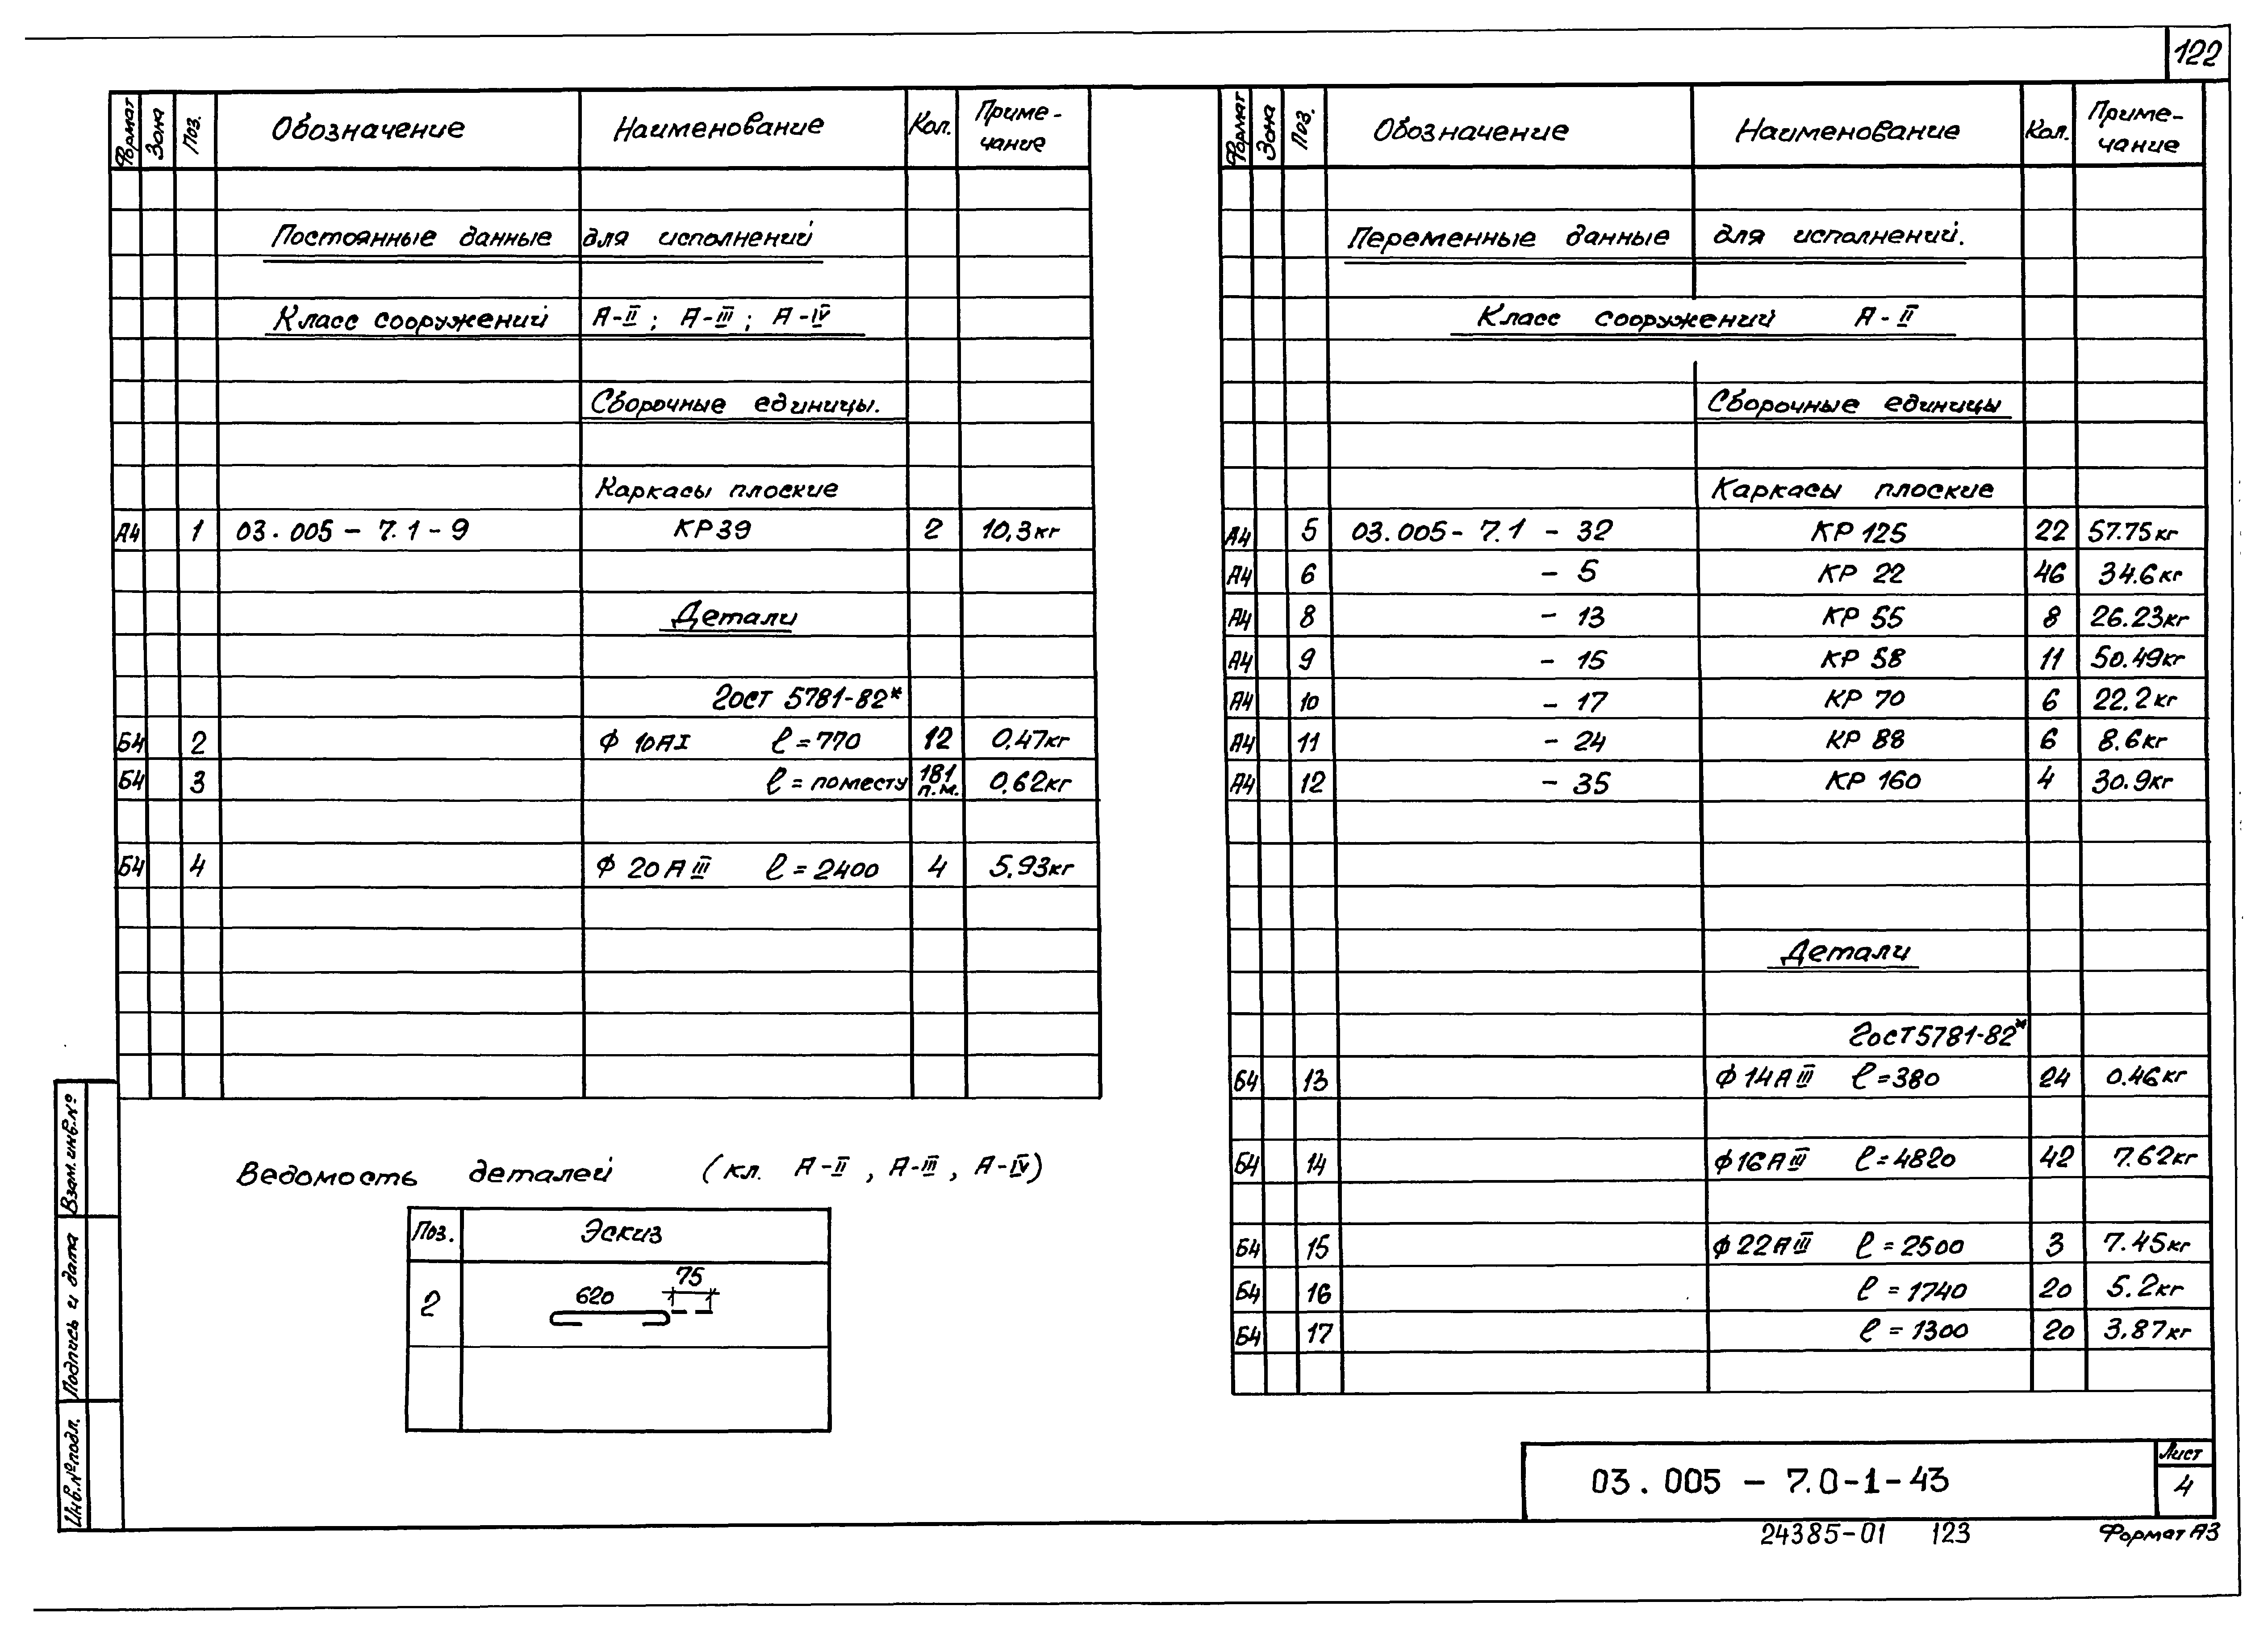 122
Формат Зона Поз. Обозначение Наименование Кол. Приме-чание
Постоянные данные для исполнений
Класс сооружений А-II ; А-III ; А-IV
Сборочные единицы.
Каркасы плоские
А4 1 03.005 - 7.1 - 9 КР39 2 10,3кг
Детали
Гост 5781-82*
Б4 2 ф 10АI ℓ = 770 12 0.47кг
Б4 3 ℓ = поместу 181 п.м. 0.62кг
Б4 4 ф 20АIII ℓ = 2400 4 5.93кг
Ведомость деталей (кл. А-II , А-III , А-IV)
Поз. Эскиз
2 620 75
Формат Зона Поз. Обозначение Наименование Кол. Приме-чание
Переменные данные для исполнений.
Класс сооружений А-II
Сборочные единицы
Каркасы плоские
А4 5 03.005 - 7.1 - 32 КР 125 22 57.75кг
А4 6 - 5 КР 22 46 34.6кг
А4 8 - 13 КР 55 8 26.23кг
А4 9 - 15 КР 58 11 50.49кг
А4 10 - 17 КР 70 6 22.2кг
А4 11 - 24 КР 88 6 8.6кг
А4 12 - 35 КР 160 4 30.9кг
Детали
Гост 5781-82*
Б4 13 ф 14АIII ℓ = 380 24 0.46кг
Б4 14 ф 16АIII ℓ = 4820 42 7.62кг
Б4 15 ф 22АIII ℓ = 2500 3 7.45кг
Б4 16 ℓ = 1740 20 5.2кг
Б4 17 ℓ = 1300 20 3.87кг
Взам.инв.№
Подпись и дата
Инв.№подл.
03.005 - 7.0-1-43
Лист
4
24385-01 123 Формат А3